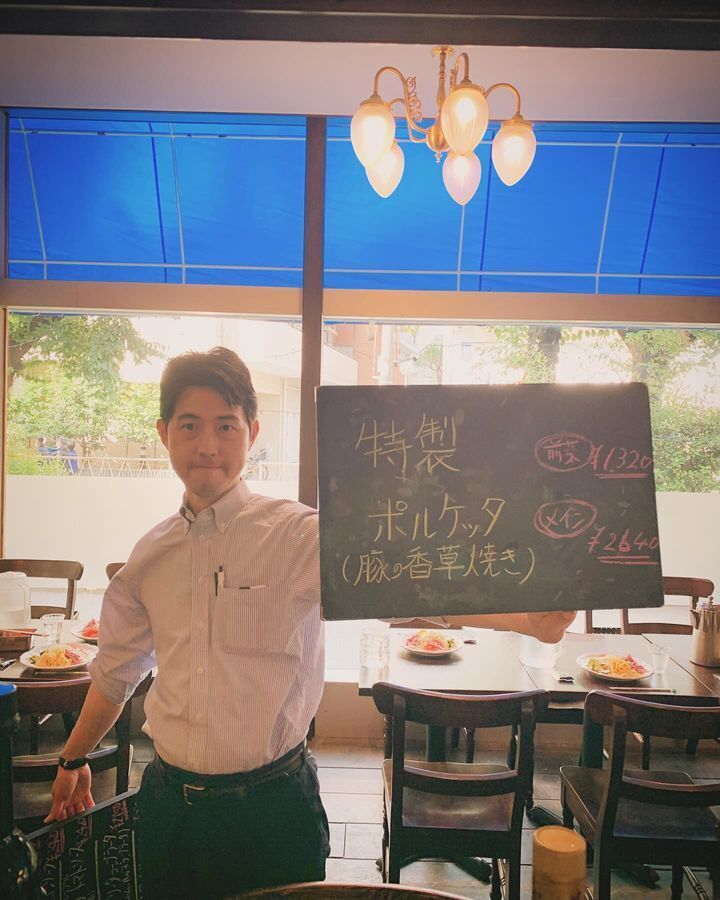 特製
前菜 ¥1,320
ポルケッタ
メイン ¥2640
(豚の香草焼き)